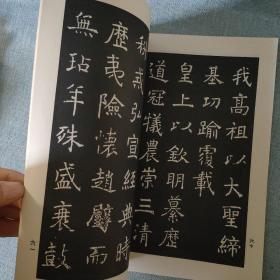 我高祖以大聖締
基功踰覆載
皇上以欽明纂歷
道冠犧農崇三清
六十
弘宣經典時
歷夷險懷趙璧而
無玷年殊盛衰鼓
六一